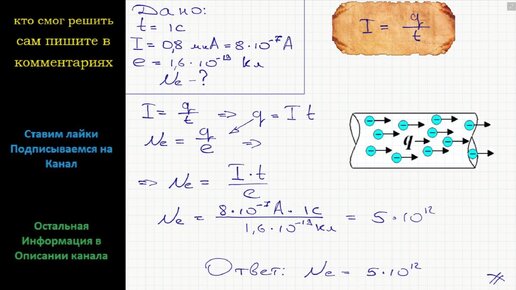 кто смог решить
сам пишите в
комментариях
Ставим лайки
Подписываемся на
Канал
Остальная
Информация в
Описании канала
Дано:
t = 1с
I = 0,8 мкА = 8·10⁻⁷А
e = 1,6·10⁻¹⁹ Кл
Ne - ?
I = q/t
I = q/t => q = I t
Ne = q/e =>
=> Ne = I·t/e
Ne = 8·10⁻⁷А · 1с / 1,6·10⁻¹⁹Кл = 5·10¹²
Ответ: Ne = 5·10¹²
q